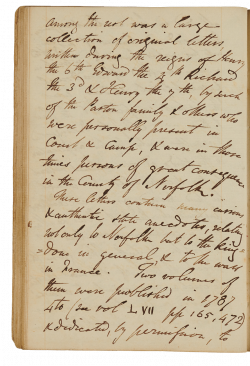 among the rest was a large
collection of original letters,
written during the reigns of Henry
the 6th Edward the 4th Richard
the 3d & Henry the 7th, by such
of the Paston family & others who
were personally present in
Court & Camp, & were in those
times persons of great consequence
in the County of Norfolk.
These letters contain many curious
& authentic state anecdotes, relating
not only to Norfolk but to the King-
dom in general, & to the wars
in France. Two volumes of
them were published in 1787
4to (see vol LVII pp 165, 472)
& dedicated, by permission, to